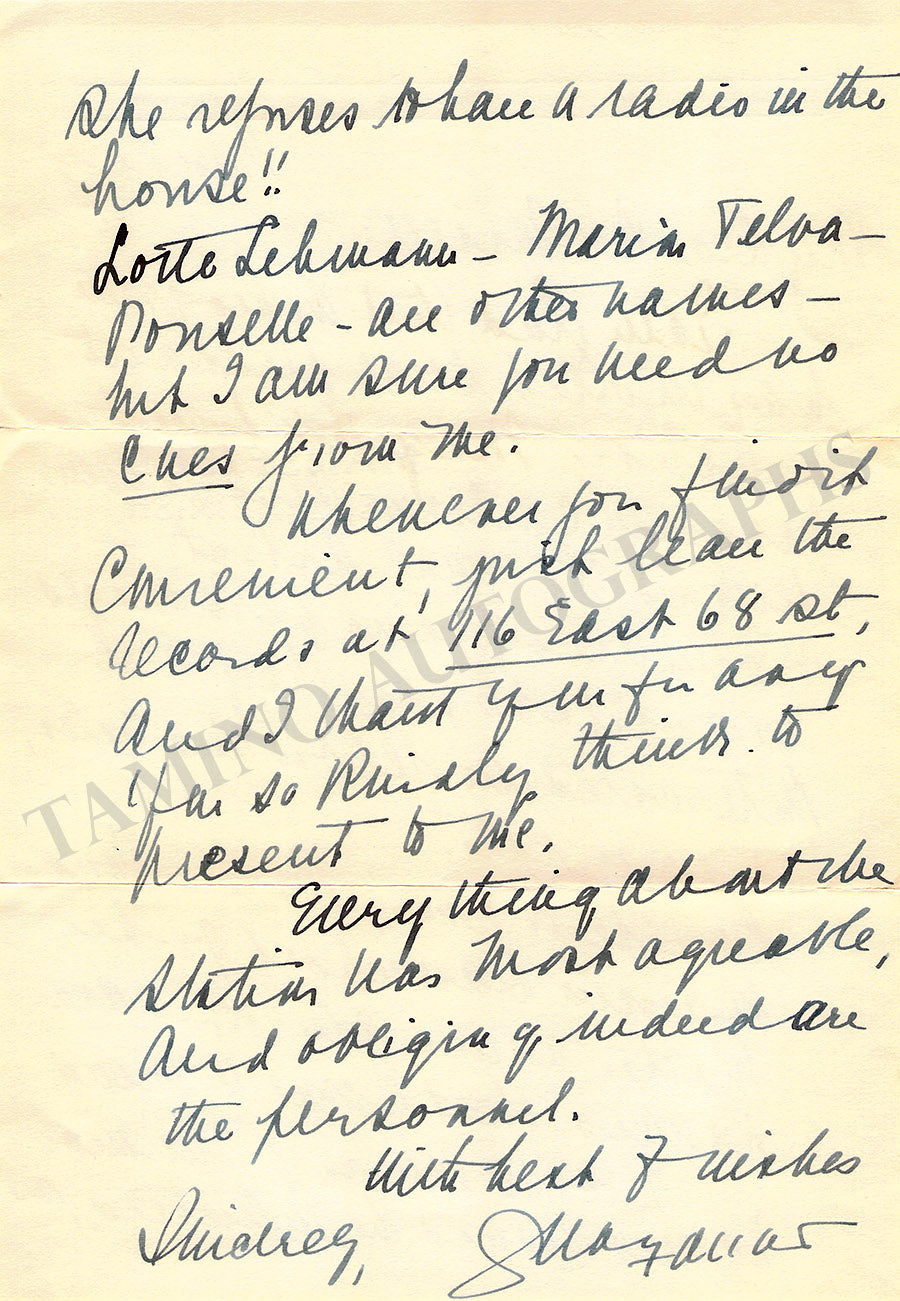 She refuses to have a radio in the
house!!
Lotte Lehmann - Marion Telva -
Ponselle - are other names -
but I am sure you need no
cues from me.
Whenever you find it
Convenient, just leave the
records at 116 East 68 st,
And I thank you for any
You so Kindly think to
present to me.
Everything about the
Station was most agreable,
And obliging indeed are
the personnel.
With best of wishes
Sincerely,
TAMINO AUTOGRAPHS